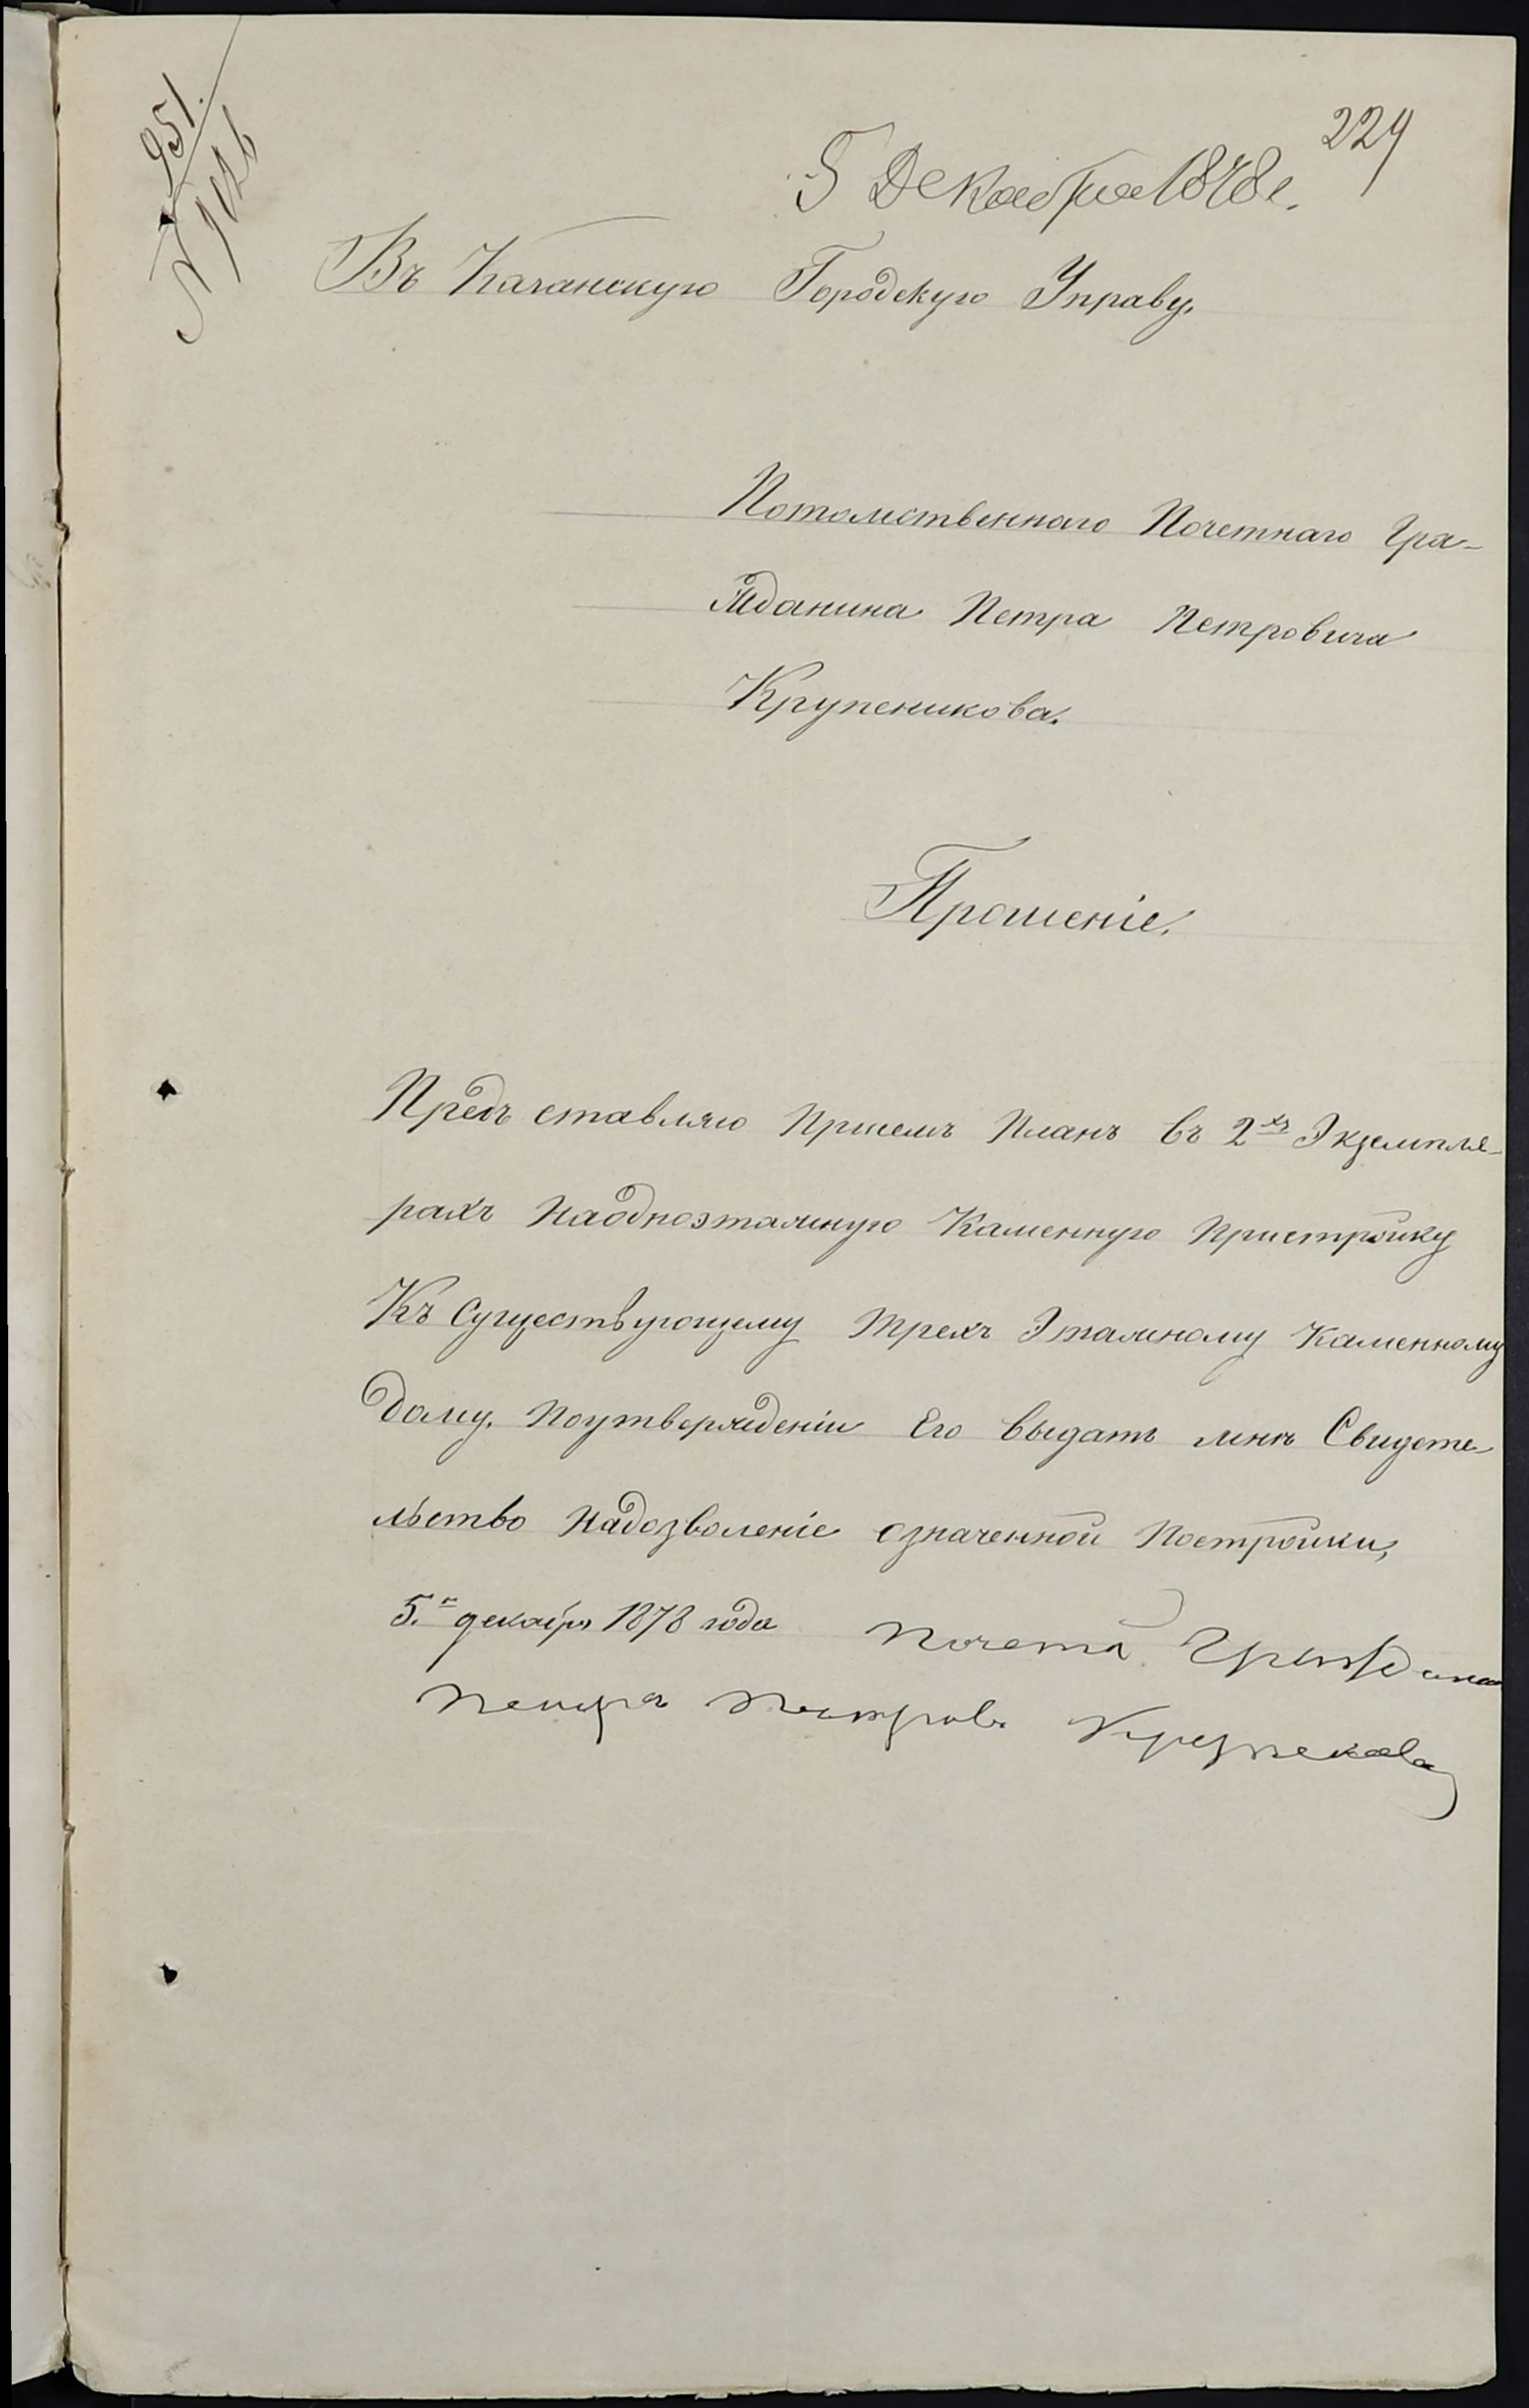 951.
229
5 Декабря 1878 г.
Въ Казанскую Городскую Управу.
Потомственнаго Почетнаго Гра-
жданина Петра Петровича
Крупеникова.
Прошеніе.
Предъ ставляю присемъ Планъ въ 2хъ Экземпля-
рахъ Наодноэтажную Каменную Пристройку
Къ Существующему трехъ Этажному Каменному
дому. Поутвержденіи Его выдать мнѣ Свидете-
льство Надозволеніе означенной Постройки,
5.го декабря 1878 года Почетн. Гражданинъ
Петръ Петровъ Крупениковъ